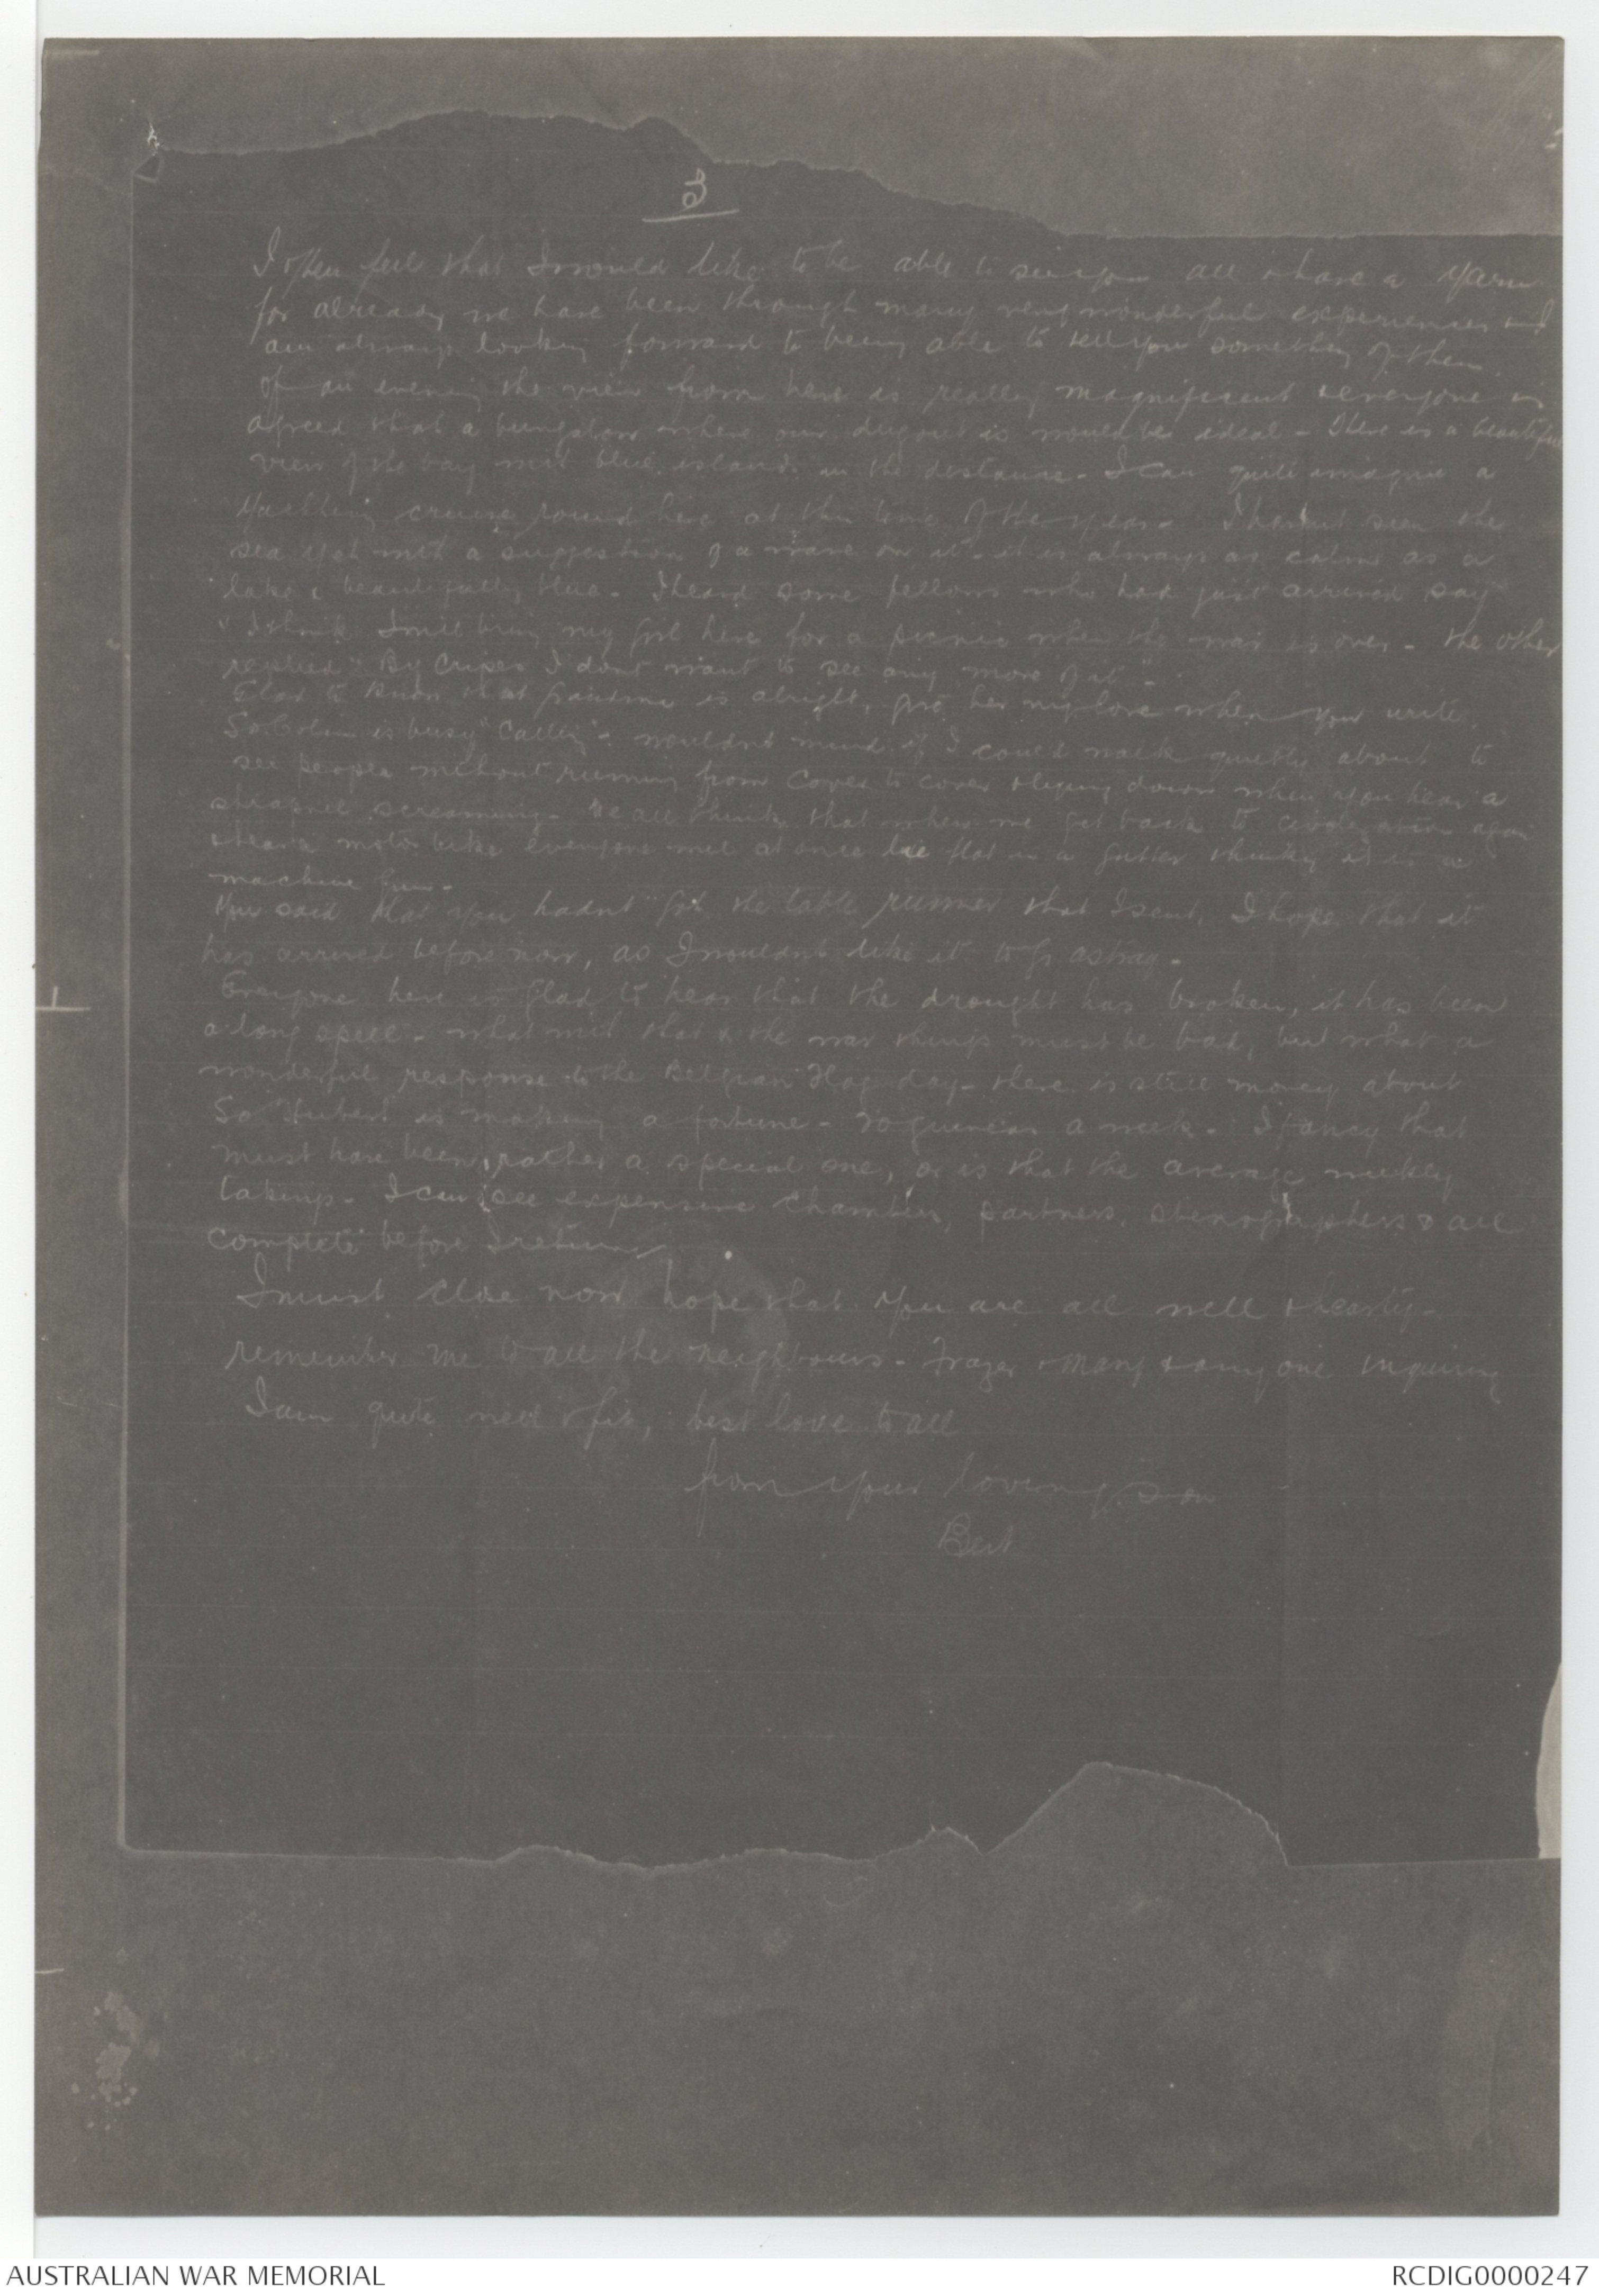 5
I often feel that I would like to be able to see you all & have a yarn
for already we have been through many very wonderful experiences and I
am always looking forward to being able to tell you something of them
of an evening the view from here is really magnificent & everyone is
agreed that a bungalow where our dugout is would be ideal - there is a beautiful
view of the bay with blue islands in the distance - I can quite imagine a
yachting cruise round here at this time of the year - I havent seen the
sea yet with a suggestion of a wave on it - it is always as calm as a
lake & beautifully blue - I heard some fellows who had just arrived say
"I think I will bring my girl here for a picnic when the war is over - the other
replied "By Cripes I dont want to see any more of it" -
Glad to know that grandma is alright, give her my love when you write,
So Colin is busy "Calling" - wouldnt mind if I could walk quietly about to
see people without running from cover to cover & lying down when you hear a
shrapnel screaming - We all think that when we get back to civilization again
& hear a motor bike everyone will at once lie flat in a gutter thinking it is a
machine gun -
You said that you hadnt got the table runner that I sent, I hope that it
has arrived before now, as I wouldnt like it to go astray -
Everyone here is glad to hear that the drought has broken, it has been
a long spell - what with that & the war things must be bad, but what a
wonderful response to the Belgian Flag day - there is still money about
So "Hubert" is making a fortune - 20 guineas a week - I fancy that
must have been rather a special one, or is that the average weekly
takings - I can see expensive Chambers, partners, stenographers & all
complete before I return
I must close now hope that you are all well & hearty -
remember me to all the neighbours - Frazer & Mary & any one inquiring
I am quite well & fit, best love to all
from your loving son
Bert
AUSTRALIAN WAR MEMORIAL
RCDIG0000247